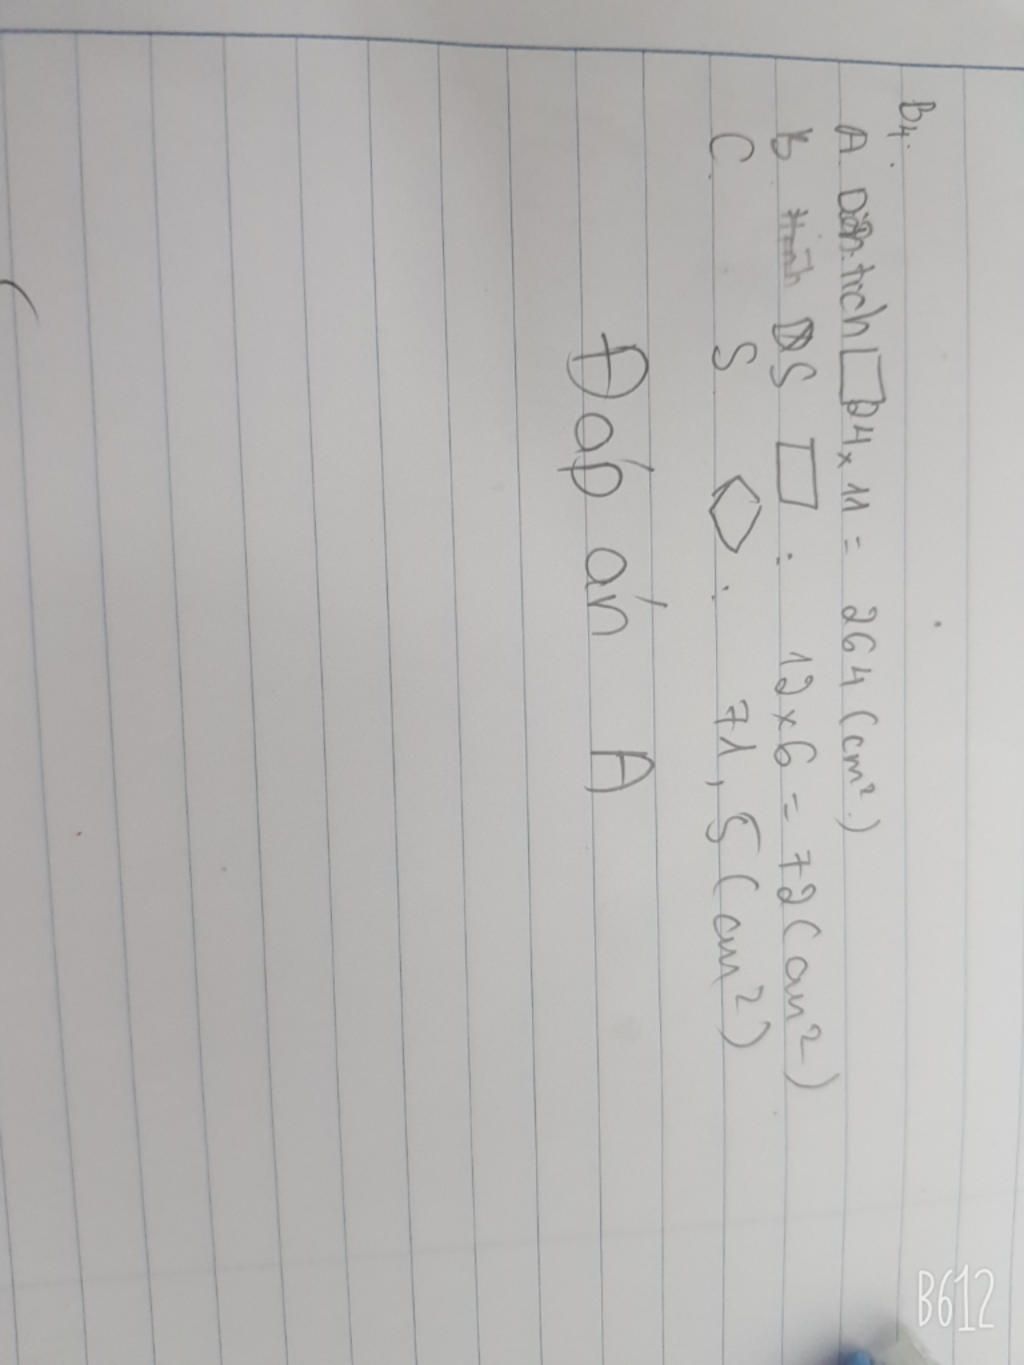 B4.
A. Diện tích 24 x 11 = 264 (cm².)
B. S : 12 x 6 = 72 (cm²)
C. S : 71,5 (cm²)
Đáp án A
B612